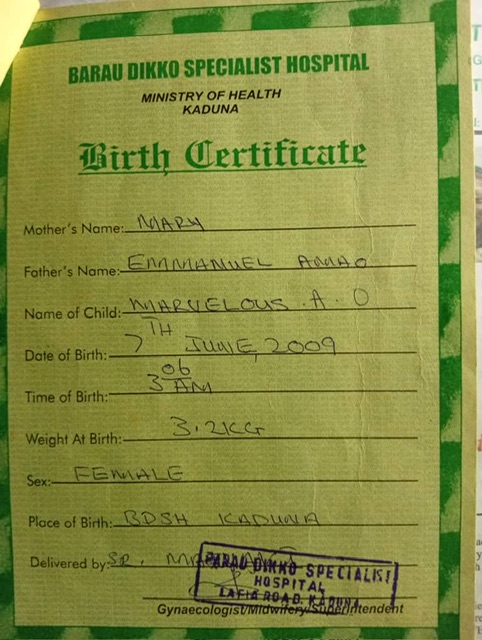 BARAU DIKKO SPECIALIST HOSPITAL
MINISTRY OF HEALTH
KADUNA
Birth Certificate
Mother's Name: MARY
Father's Name: EMMANUEL AMAO
Name of Child: MARVELOUS . A . O
Date of Birth: 7TH JUNE, 2009
Time of Birth: 3 06 AM
Weight At Birth: 3.2KG
Sex: FEMALE
Place of Birth: BDSH KADUNA
Delivered by: SR.
BARAU DIKKO SPECIALIST
HOSPITAL
LAFIA ROAD, KADUNA
Gynaecologist/Midwifery/Superintendent